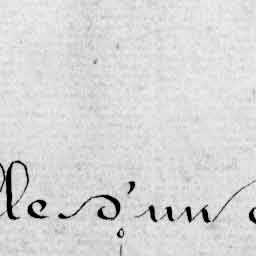 lle d'un